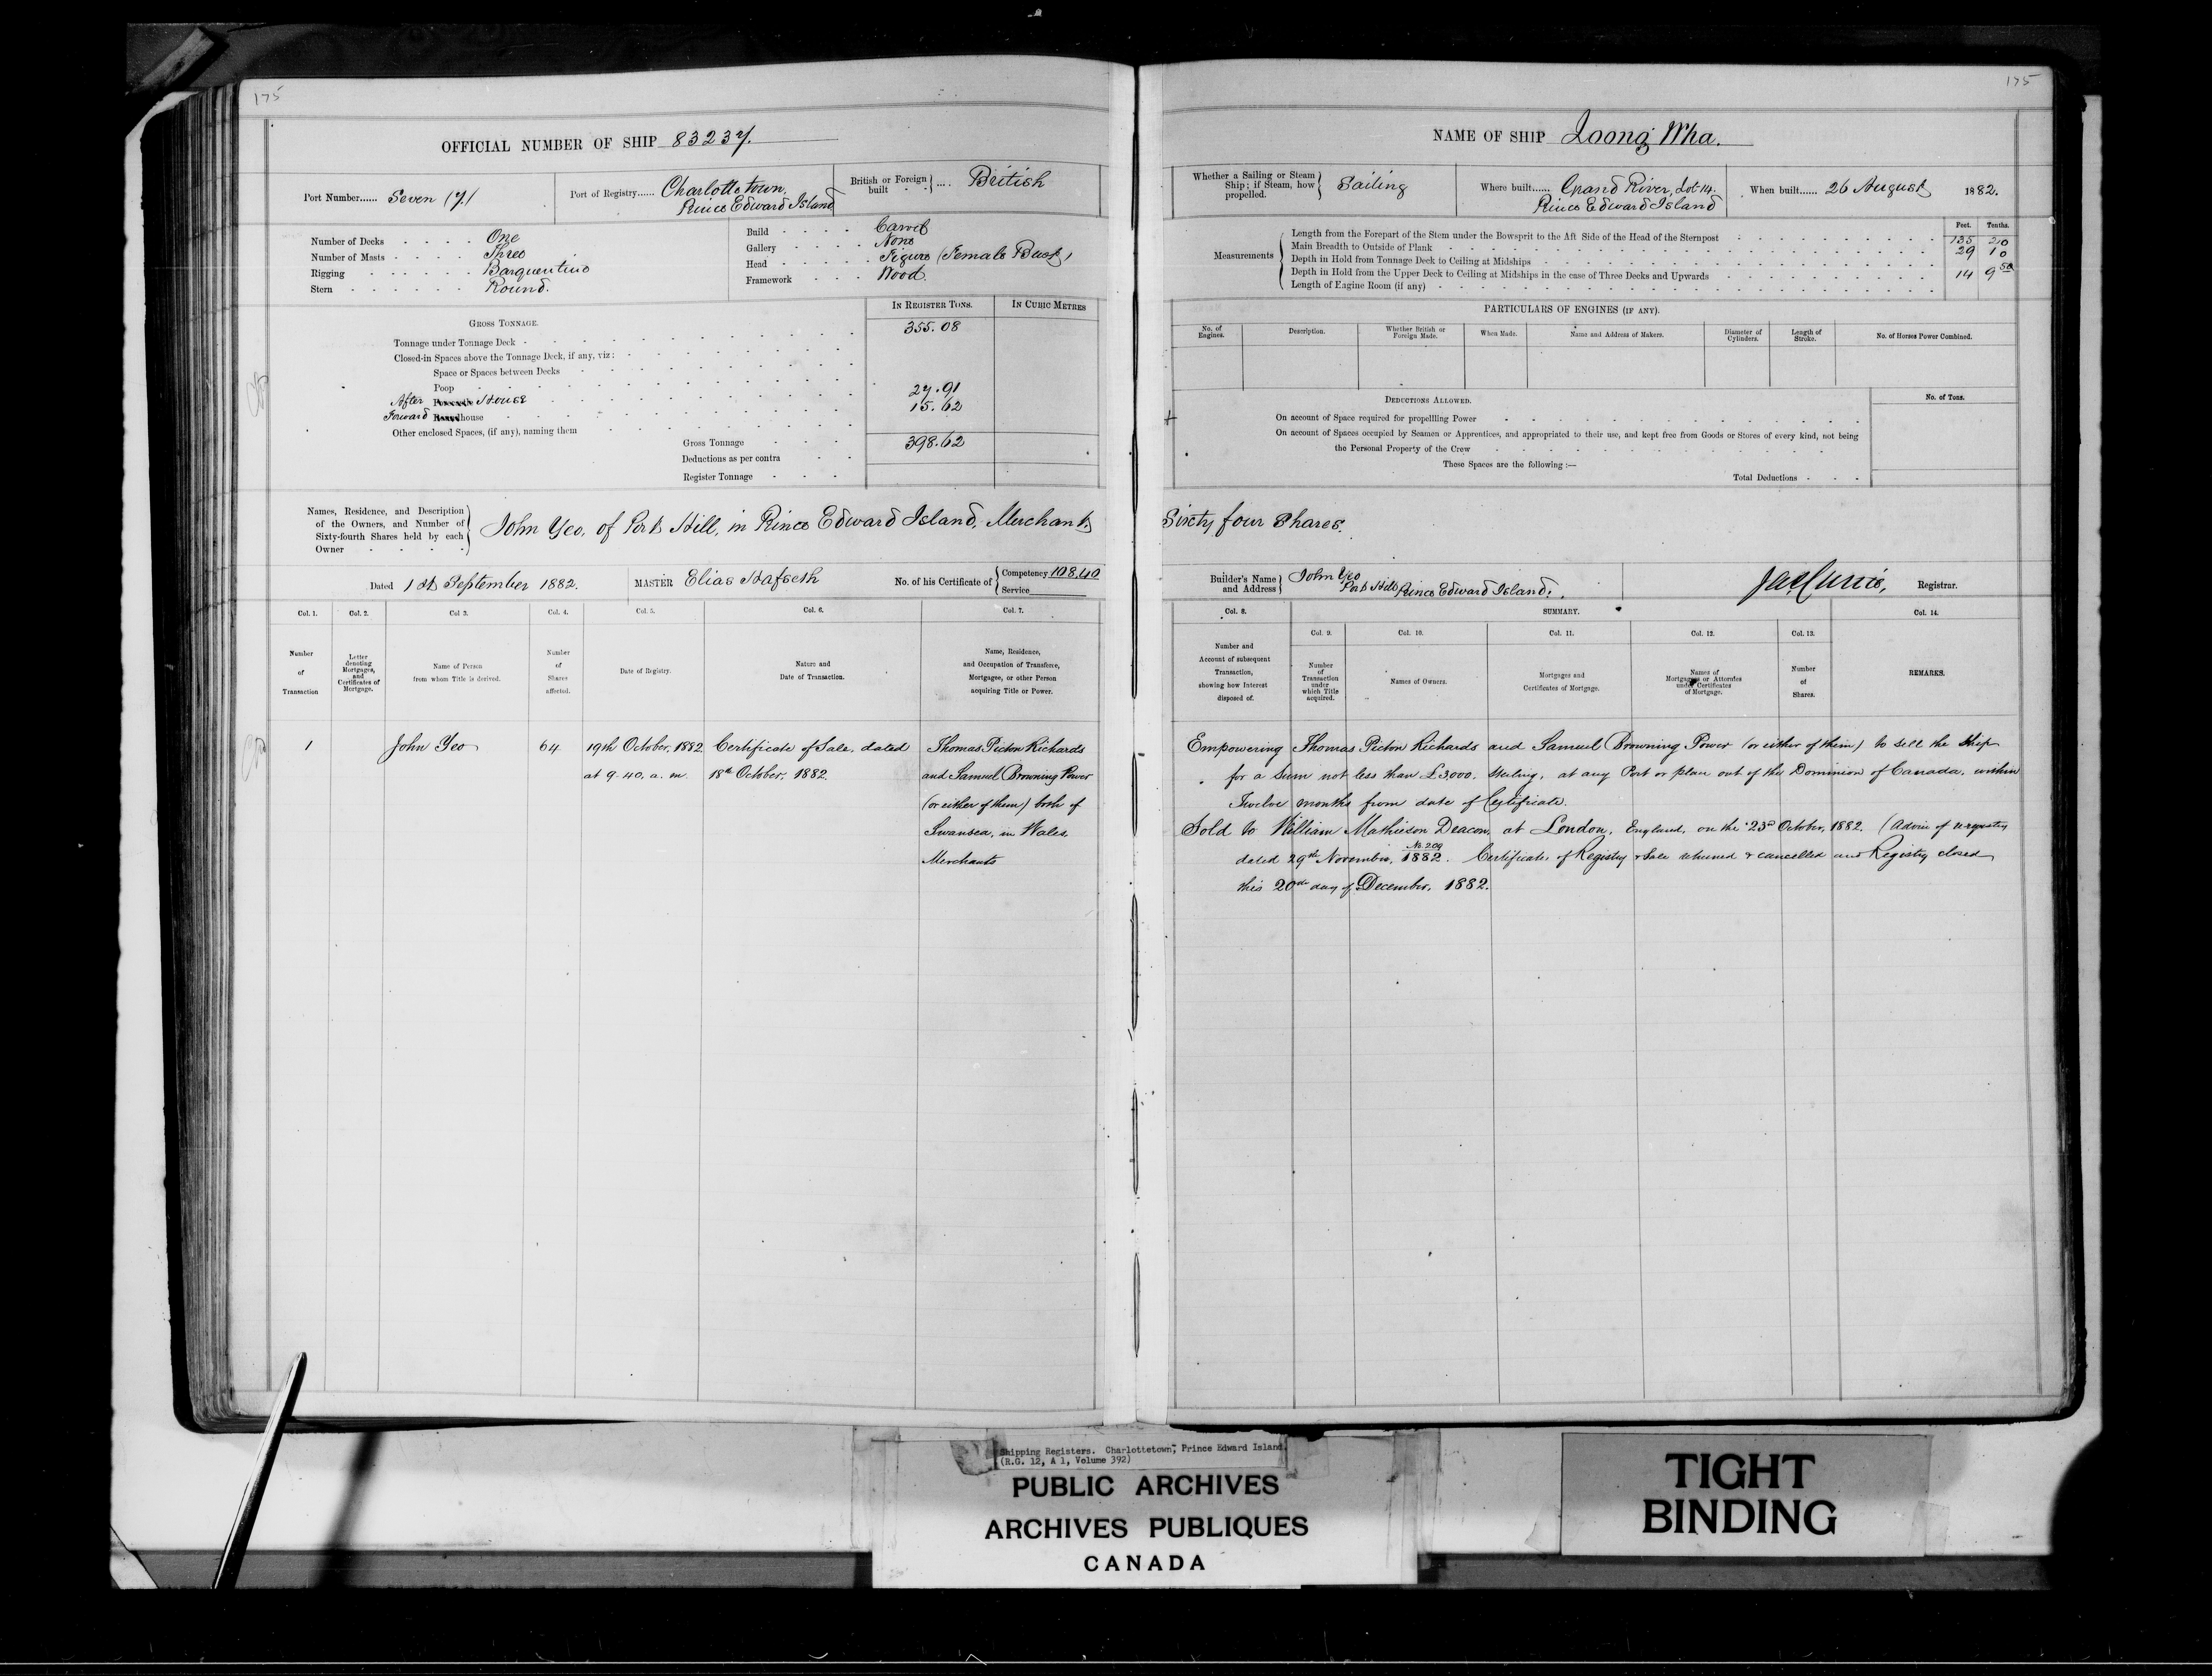 175
OFFICIAL NUMBER OF SHIP 83237.
Port Number...... Seven (7)
Port of Registry...... Charlottetown,
Prince Edward Island
British or Foreign built .... British
Number of Decks One
Number of Masts Three
Rigging Barquentine
Stern Round.
Build Carvel
Gallery None
Head Figure (Female Bust)
Framework Wood
IN REGISTER TONS.
IN CUBIC METRES
GROSS TONNAGE.
Tonnage under Tonnage Deck 355.08
Closed-in Spaces above the Tonnage Deck, if any, viz:
Space or Spaces between Decks
Poop
After House 27.91
Forward house 15.62
Other enclosed Spaces, (if any), naming them
Gross Tonnage 398.62
Deductions as per contra
Register Tonnage
Names, Residence, and Description
of the Owners, and Number of
Sixty-fourth Shares held by each
Owner
John Yeo, of Port Hill, in Prince Edward Island, Merchant,
Dated 1st September 1882.
MASTER Elias Hafseth
No. of his Certificate of
Competency 108,40
Service
Col. 1. Col. 2. Col 3. Col. 4. Col. 5. Col. 6. Col. 7.
Number of Transaction
Letter denoting Mortgages, and Certificates of Mortgage.
Name of Person from whom Title is derived.
Number of Shares affected.
Date of Registry.
Nature and Date of Transaction.
Name, Residence, and Occupation of Transferee, Mortgagee, or other Person acquiring Title or Power.
1 John Yeo 64 19th October, 1882 Certificate of Sale, dated Thomas Picton Richards
at 9.40. a.m. 18th October, 1882 and Samuel Browning Power
(or either of them) both of
Swansea, in Wales,
Merchants
175
NAME OF SHIP Loong Wha.
Whether a Sailing or Steam Ship; if Steam, how propelled. Sailing
Where built...... Grand River, Lot 14.
Prince Edward Island
When built...... 26 August 1882.
Measurements
Feet. Tenths.
Length from the Forepart of the Stem under the Bowsprit to the Aft Side of the Head of the Sternpost 135 20
Main Breadth to Outside of Plank 29 10
Depth in Hold from Tonnage Deck to Ceiling at Midships 14 9 50
Depth in Hold from the Upper Deck to Ceiling at Midships in the case of Three Decks and Upwards
Length of Engine Room (if any)
PARTICULARS OF ENGINES (IF ANY).
No. of Engines.
Description.
Whether British or Foreign Made.
When Made.
Name and Address of Makers.
Diameter of Cylinders.
Length of Stroke.
No. of Horses Power Combined.
DEDUCTIONS ALLOWED.
No. of Tons.
On account of Space required for propellling Power
On account of Spaces occupied by Seamen or Apprentices, and appropriated to their use, and kept free from Goods or Stores of every kind, not being
the Personal Property of the Crew
These Spaces are the following :—
Total Deductions
Sixty four Shares.
Builder's Name and Address
John Yeo
Port Hill, Prince Edward Island.
Registrar.
Col. 8. SUMMARY. Col. 14.
Col. 9. Col. 10. Col. 11. Col. 12. Col. 13.
Number and Account of subsequent Transaction, showing how Interest disposed of.
Number of Transaction under which Title acquired.
Names of Owners.
Mortgages and Certificates of Mortgage.
Names of Mortgagees or Attornies under Certificates of Mortgage.
Number of Shares.
REMARKS.
Empowering Thomas Picton Richards and Samuel Browning Power (or either of them) to sell the Ship
for a sum not less than £3,000. Sterling, at any Port or place out of the Dominion of Canada, within
Twelve months from date of Certificate.
Sold to William Mathieson Deacon, at London, England, on the 23rd October, 1882. (Advice of
dated 29th November, 1882. No. 209 Certificates of Registry & Sale returned & cancelled and Registry closed
this 20th day of December, 1882.
Shipping Registers. Charlottetown, Prince Edward Island
(R.G. 12, A 1, Volume 392)
PUBLIC ARCHIVES
ARCHIVES PUBLIQUES
CANADA
TIGHT
BINDING